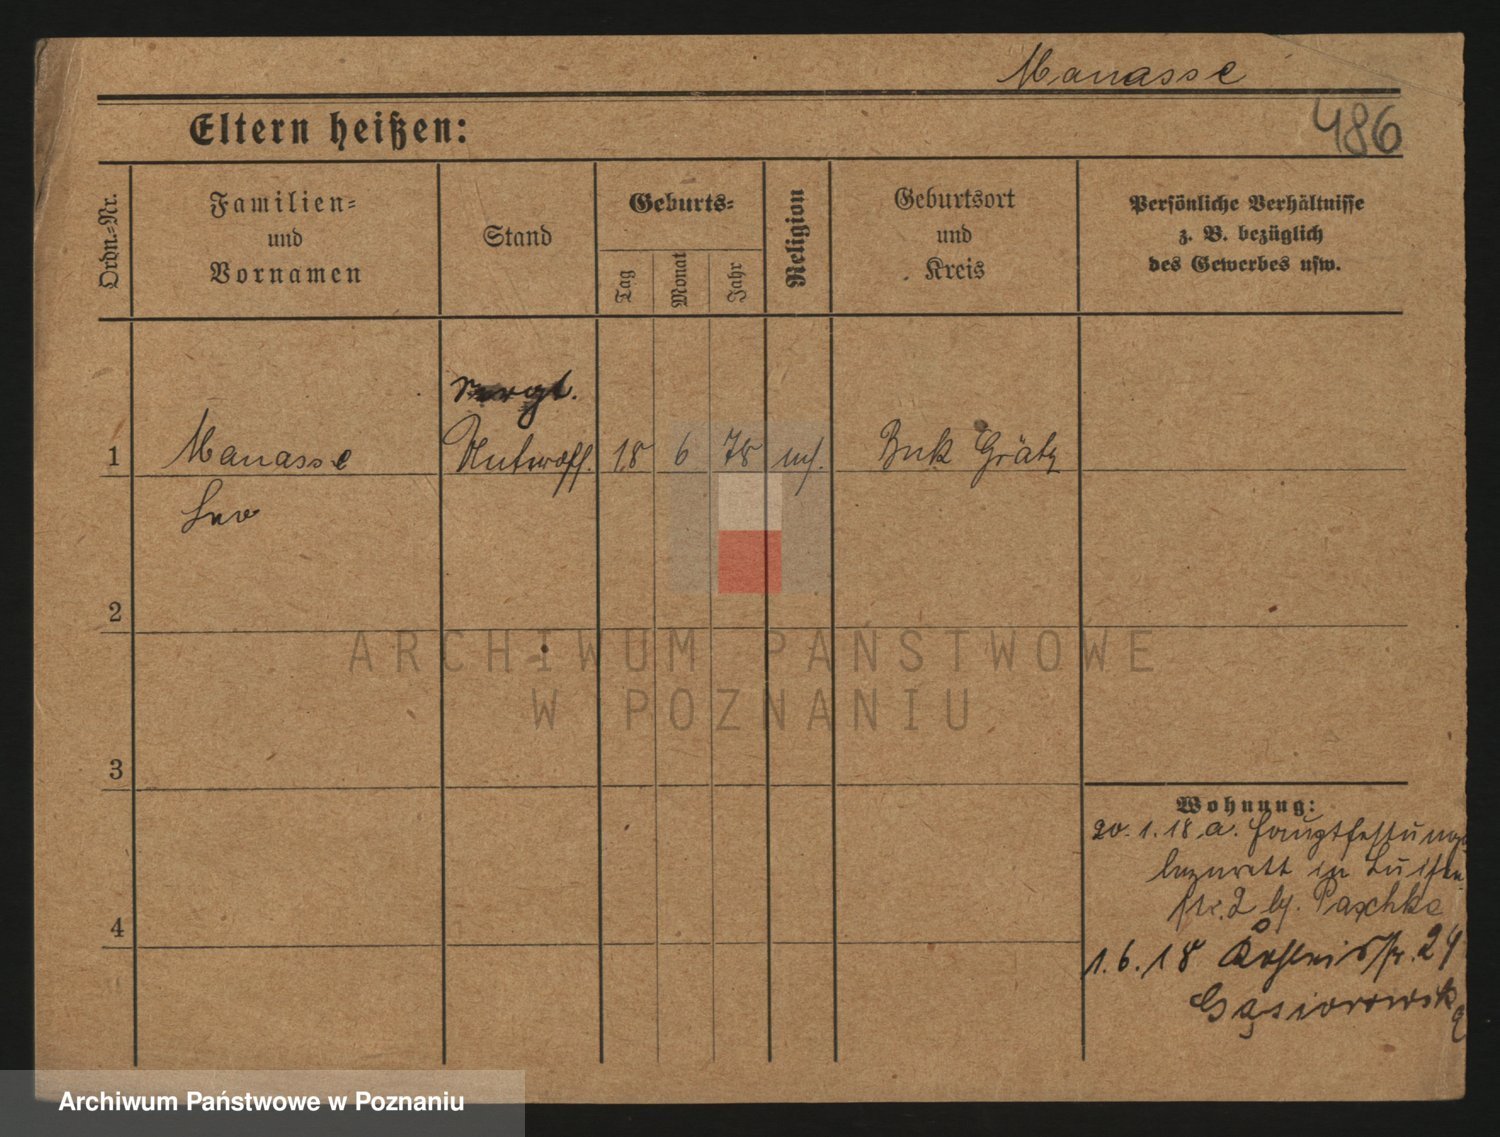 Manasse
486
Eltern heißen:
Ordn.-Nr.
Familien-
und
Vornamen
Stand
Geburts-
Tag
Monat
Jahr
Religion
Geburtsort
und
Kreis
Persönliche Verhältnisse
z. B. bezüglich
des Gewerbes usw.
Sergt.
1 Manasse Unteroff. 18 6 78 Buk Grätz
Leo
2
ARCHIWUM PAŃSTWOWE
W POZNANIU
3
Wohnung:
20.1.18 a. Hauptfestungs
lazarett in Luisen
str. 2 bj. Paschke
4
1.6.18 24
Gąsiorowski
Archiwum Państwowe w Poznaniu